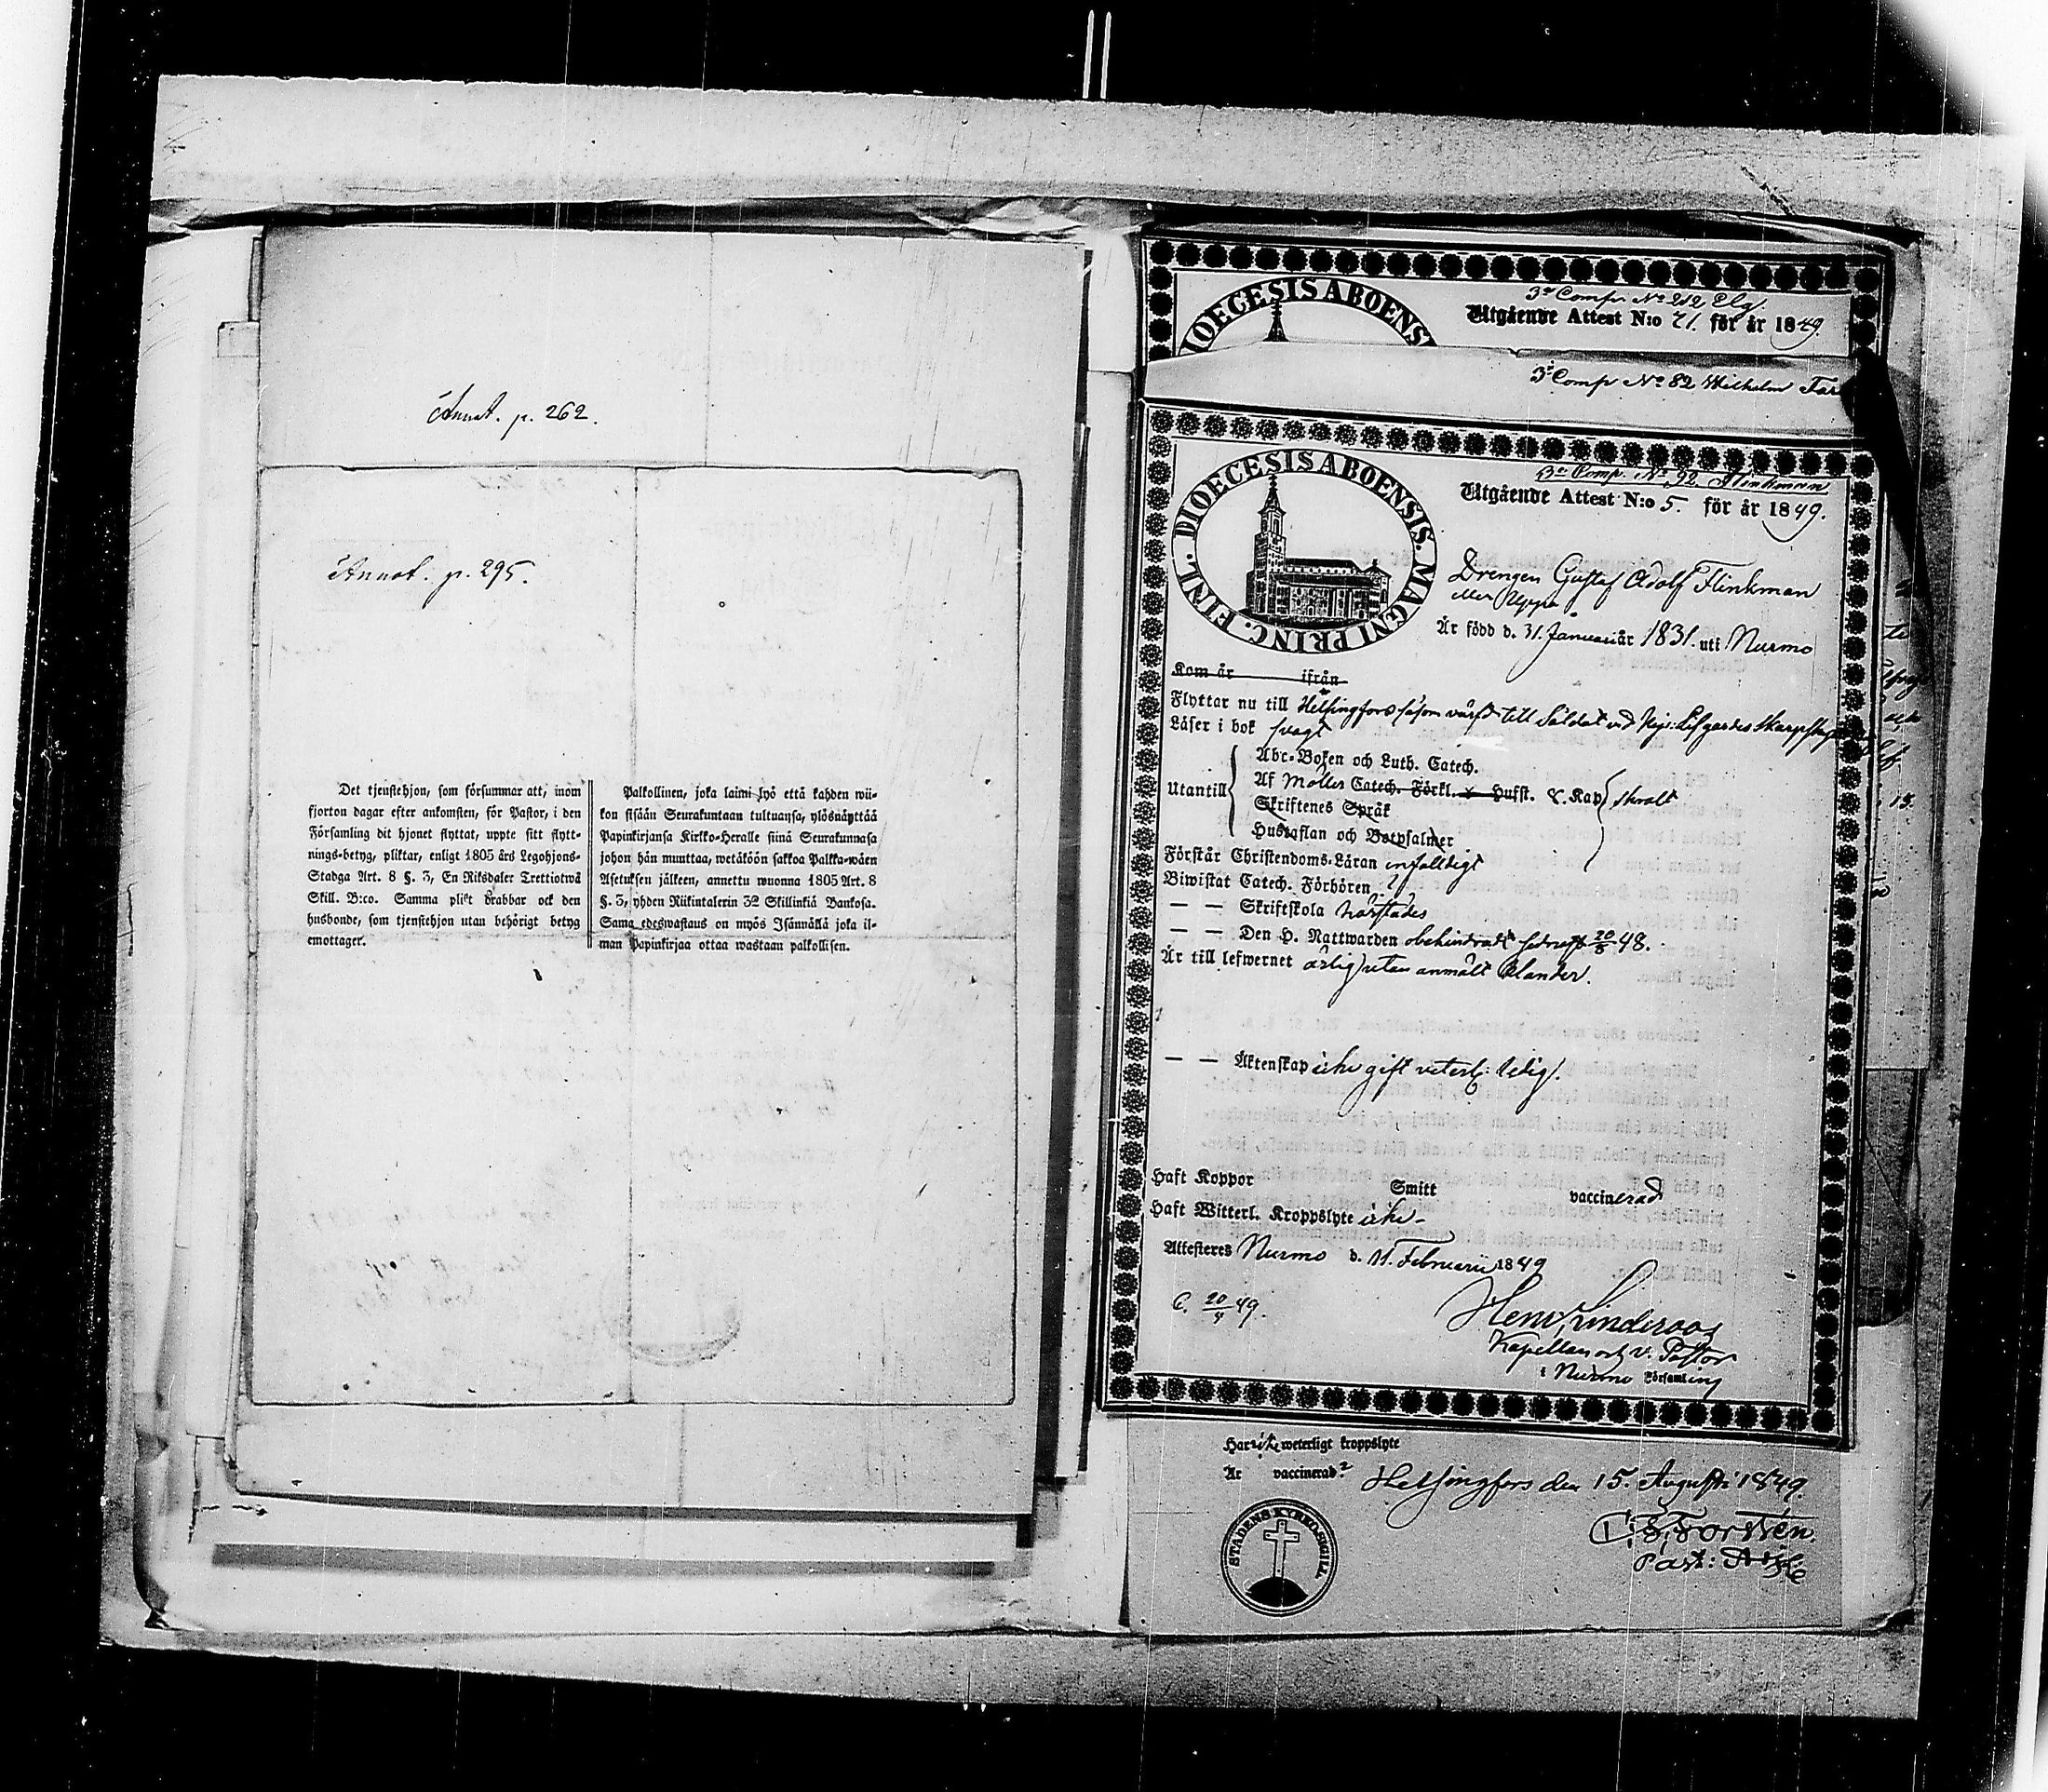 Annot. p. 262.
Annot. p. 295.
Det tjenstehjon, som försummar att, inom
fjorton dagar efter ankomsten, för Pastor, i den
Församling dit hjonet flyttat, uppte sitt flytt-
nings-betyg, pliktar, enligt 1805 års Legohjons-
Stadga Art. 8 §. 3, En Riksdaler Trettiotwå
Skill. B:co. Samma plikt drabbar ock den
husbonde, som tjenstehjon utan behörigt betyg
emottager.
Palkollinen, joka laimi lyö että kahden wii-
kon sisään Seurakuntaan tultuansa, ylösnäyttää
Papinkirjansa Kirkko-Heralle siinä Seurakunnasa
johon hän muuttaa, wetäköön sakkoa Palkka-wäen
Asetuksen jälkeen, annettu wuonna 1805 Art. 8
§. 3, yhden Riikintalerin 32 Skillinkiä Bankosa.
Sama edeswastaus on myös Isännällä joka il-
man Papinkirjaa ottaa wastaan palkollisen.
DIOECESIS ABOENS
3e Comp No 212 Elg.
Utgående Attest N:o 71. för år 1849.
3e Comp No 82 Wilhelm
3e Comp. No 92 Flinkman
DIOECESIS ABOENSIS. MAGNI PRINC. FINL.
Utgående Attest N:o 5. för år 1849.
Drengen Gustaf Adolf Flinkman
eller Uppa
Är född d. 31. Januari år 1831. uti Nurmo
Kom år ifrån
Flyttar nu till Helsingfors såsom värfd till Soldat vid Kejs: Lifgardes
Läser i bok svagt
Utantill
Abc-Boken och Luth. Catech.
Af Möllers Catech. Förkl. Hufst. & Kap svalt
Skriftenes Språk
Hustaflan och Botpsalmer
Förstår Christendoms-Läran enfalldigt
Biwistat Catech. Förhören
— — Skriftskola
— — Den H. Nattwarden obehindradt sednast 20/8 48.
Är till lefwernet ärlig utan anmält klander.
— — Äktenskap icke gift veterl: ledig.
Haft Koppor Smitt vaccinerad
Haft Witterl. Kroppslyte icke-
Attesteres Nurmo d. 11. Februarii 1849
C. 20/4 49.
Henr. Linderoos
Kapellan och v. Pastor
i Nurmo Församling
Har icke weterligt kroppslyte
Är vaccinerad?
Helsingfors den 15. Augusti 1849.
STADENS KYRKO-SIGILL
Forstén.
Past: